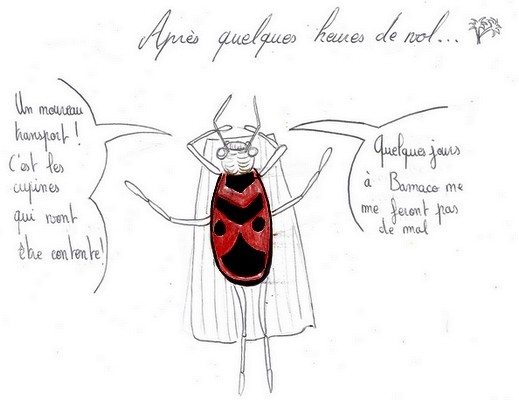 Après quelques heures de vol...
Un nouveau
transport !
C'est les
cupines
qui vont
être contente!
Quelques jours
à Bamaco me
me feront pas
de mal